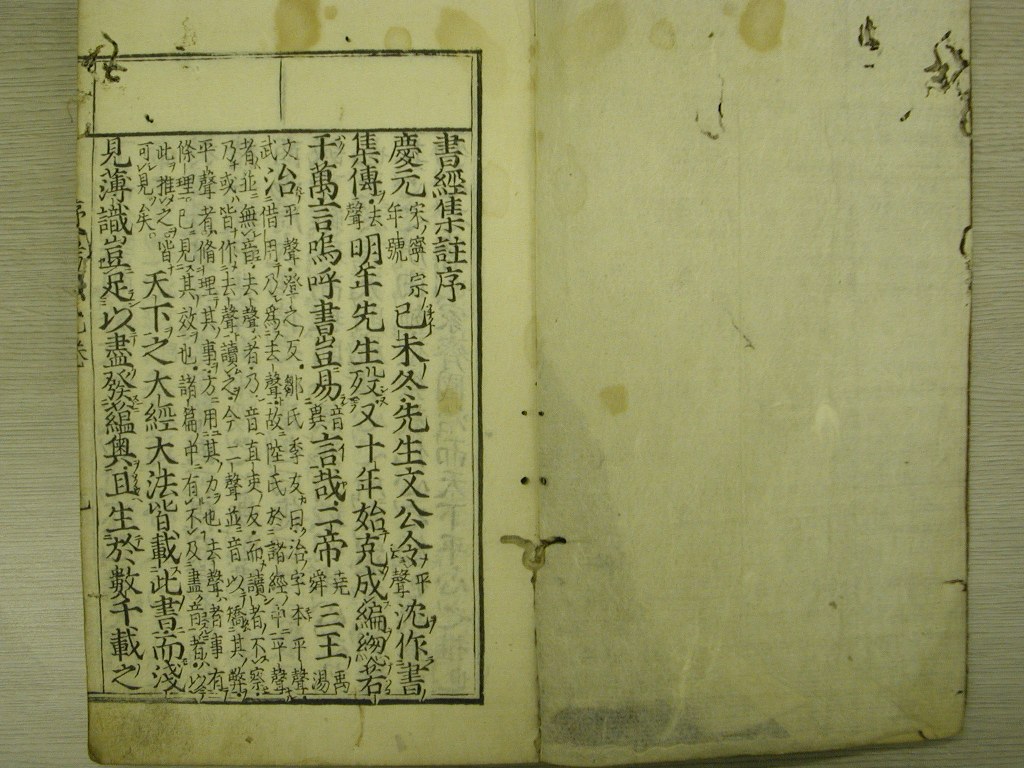 書經集註序
慶元宋寧宗年號己未冬先生文公令平聲沈作書
集傳去聲明年先生歿又十年始克成編緫若
千萬言嗚呼書豈易音異言哉二帝堯舜三王禹湯
文武治平聲澄之反鄒氏季友曰治字本平聲
借用乃爲去聲故陸氏於諸經中平聲
者並無音去聲者乃音直吏反而讀者不察
乃或皆作去聲讀之今二聲並音以矯其弊
平聲者脩理其事方用其力也去聲者事有
條理已見其效也諸篇中有不及盡音者以
此推之皆可見矣。天下之大經大法皆載此書而淺
見薄識豈足以盡發蘊奧且生於數千載之